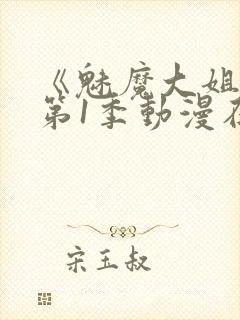 《魅魔大姐
第1季動漫在
宋玉叔